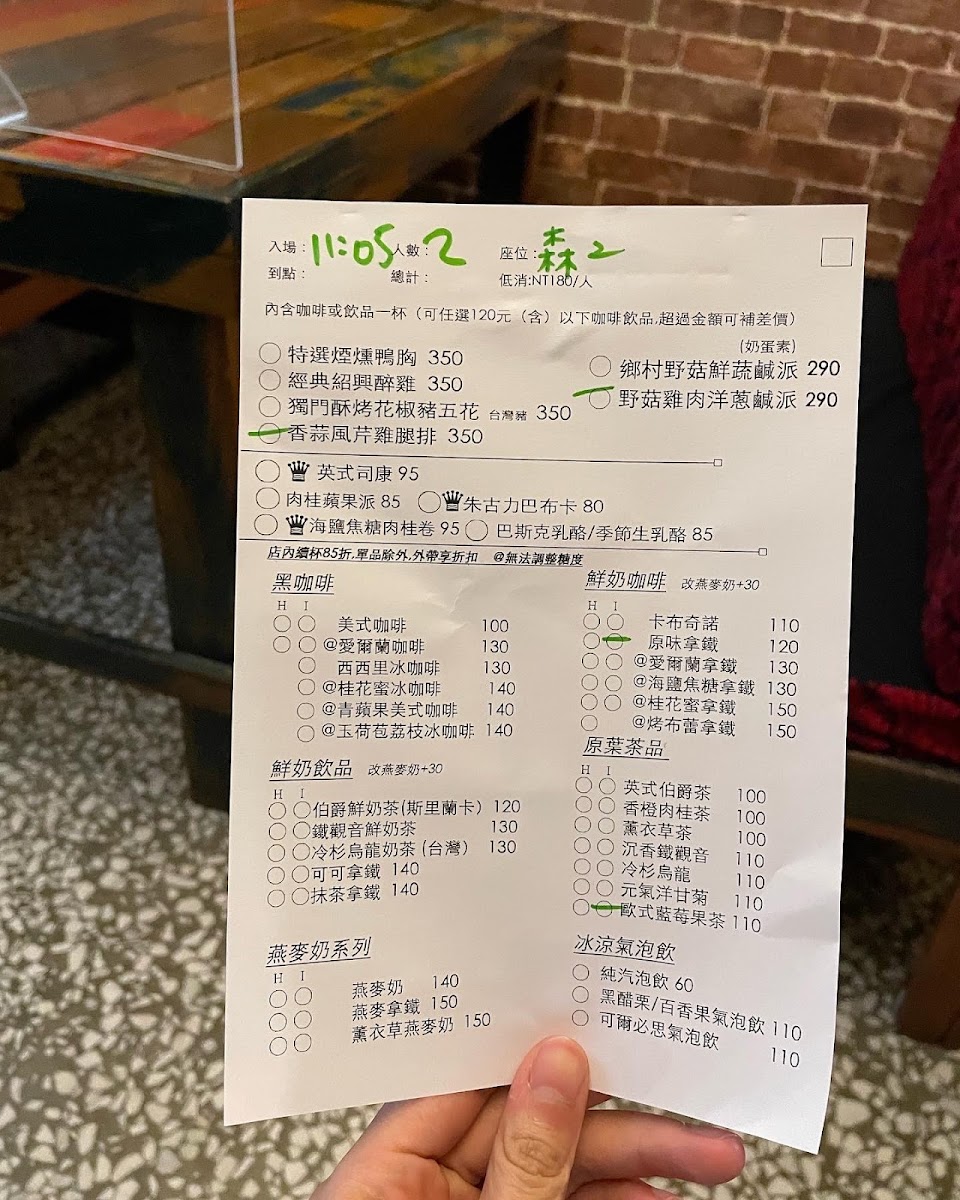 入場：11:05 人數：2 座位：森2
到點： 總計： 低消:NT180/人
內含咖啡或飲品一杯（可任選120元（含）以下咖啡飲品,超過金額可補差價）
(奶蛋素)
特選煙燻鴨胸 350
經典紹興醉雞 350
獨門酥烤花椒豬五花 台灣豬 350
香蒜風芹雞腿排 350
鄉村野菇鮮蔬鹹派 290
野菇雞肉洋蔥鹹派 290
英式司康 95
肉桂蘋果派 85 朱古力巴布卡 80
海鹽焦糖肉桂卷 95 巴斯克乳酪/季節生乳酪 85
店內續杯85折,單品除外,外帶享折扣 @無法調整糖度
黑咖啡
H I
美式咖啡 100
@愛爾蘭咖啡 130
西西里冰咖啡 130
@桂花蜜冰咖啡 140
@青蘋果美式咖啡 140
@玉荷苞荔枝冰咖啡 140
鮮奶飲品 改燕麥奶+30
H I
伯爵鮮奶茶(斯里蘭卡) 120
鐵觀音鮮奶茶 130
冷杉烏龍奶茶 (台灣) 130
可可拿鐵 140
抹茶拿鐵 140
燕麥奶系列
H I
燕麥奶 140
燕麥拿鐵 150
薰衣草燕麥奶 150
鮮奶咖啡 改燕麥奶+30
H I
卡布奇諾 110
原味拿鐵 120
@愛爾蘭拿鐵 130
@海鹽焦糖拿鐵 130
@桂花蜜拿鐵 150
@烤布蕾拿鐵 150
原葉茶品
H I
英式伯爵茶 100
香橙肉桂茶 100
薰衣草茶 100
沉香鐵觀音 110
冷杉烏龍 110
元氣洋甘菊 110
歐式藍莓果茶 110
冰涼氣泡飲
純汽泡飲 60
黑醋栗/百香果氣泡飲 110
可爾必思氣泡飲 110